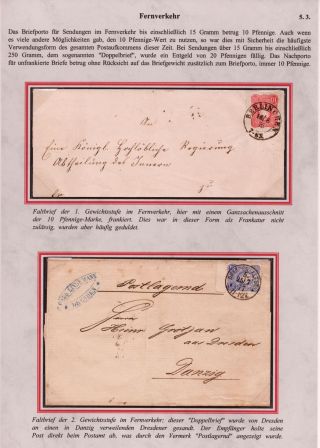 Fernverkehr
5. 3.
Das Briefporto für Sendungen im Fernverkehr bis einschließlich 15 Gramm betrug 10 Pfennige. Auch wenn
es viele andere Möglichkeiten gab, den 10 Pfennige-Wert zu nutzen, so war dies mit Sicherheit die häufigste
Verwendungsform des gesamten Postaufkommens dieser Zeit. Bei Sendungen über 15 Gramm bis einschließlich
250 Gramm, dem sogenannten "Doppelbrief", wurde ein Entgelt von 20 Pfennigen fällig. Das Nachporto
für unfrankierte Briefe betrug ohne Rücksicht auf das Briefgewicht zusätzlich zum Briefporto, immer 10 Pfennige.
An
Eine Königl. Hochlöbliche Regierung
Abtheilung des Innern
Faltbrief der 1. Gewichtsstufe im Fernverkehr, hier mit einem Ganzsachenausschnitt
der 10 Pfennige-Marke, frankiert. Dies war in dieser Form als Frankatur nicht
zulässig, wurden aber häufig geduldet.
Postlagernd
Herrn
aus Dresden
Danzig
Faltbrief der 2. Gewichtsstufe im Fernverkehr: dieser "Doppelbrief" wurde von Dresden
an einen in Danzig verweilenden Dresdener gesandt. Der Empfänger holte seine
Post direkt beim Postamt ab, was durch den Vermerk "Postlagernd" angezeigt wurde.